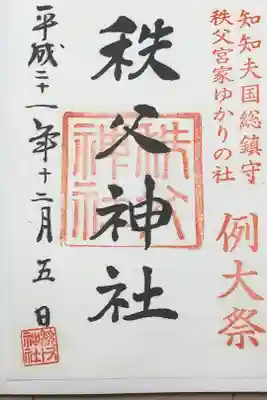 知知夫国総鎮守
秩父宮家ゆかりの社
例大祭
秩父神社
秩父神社
平成二十一年十二月五日
秩父神社